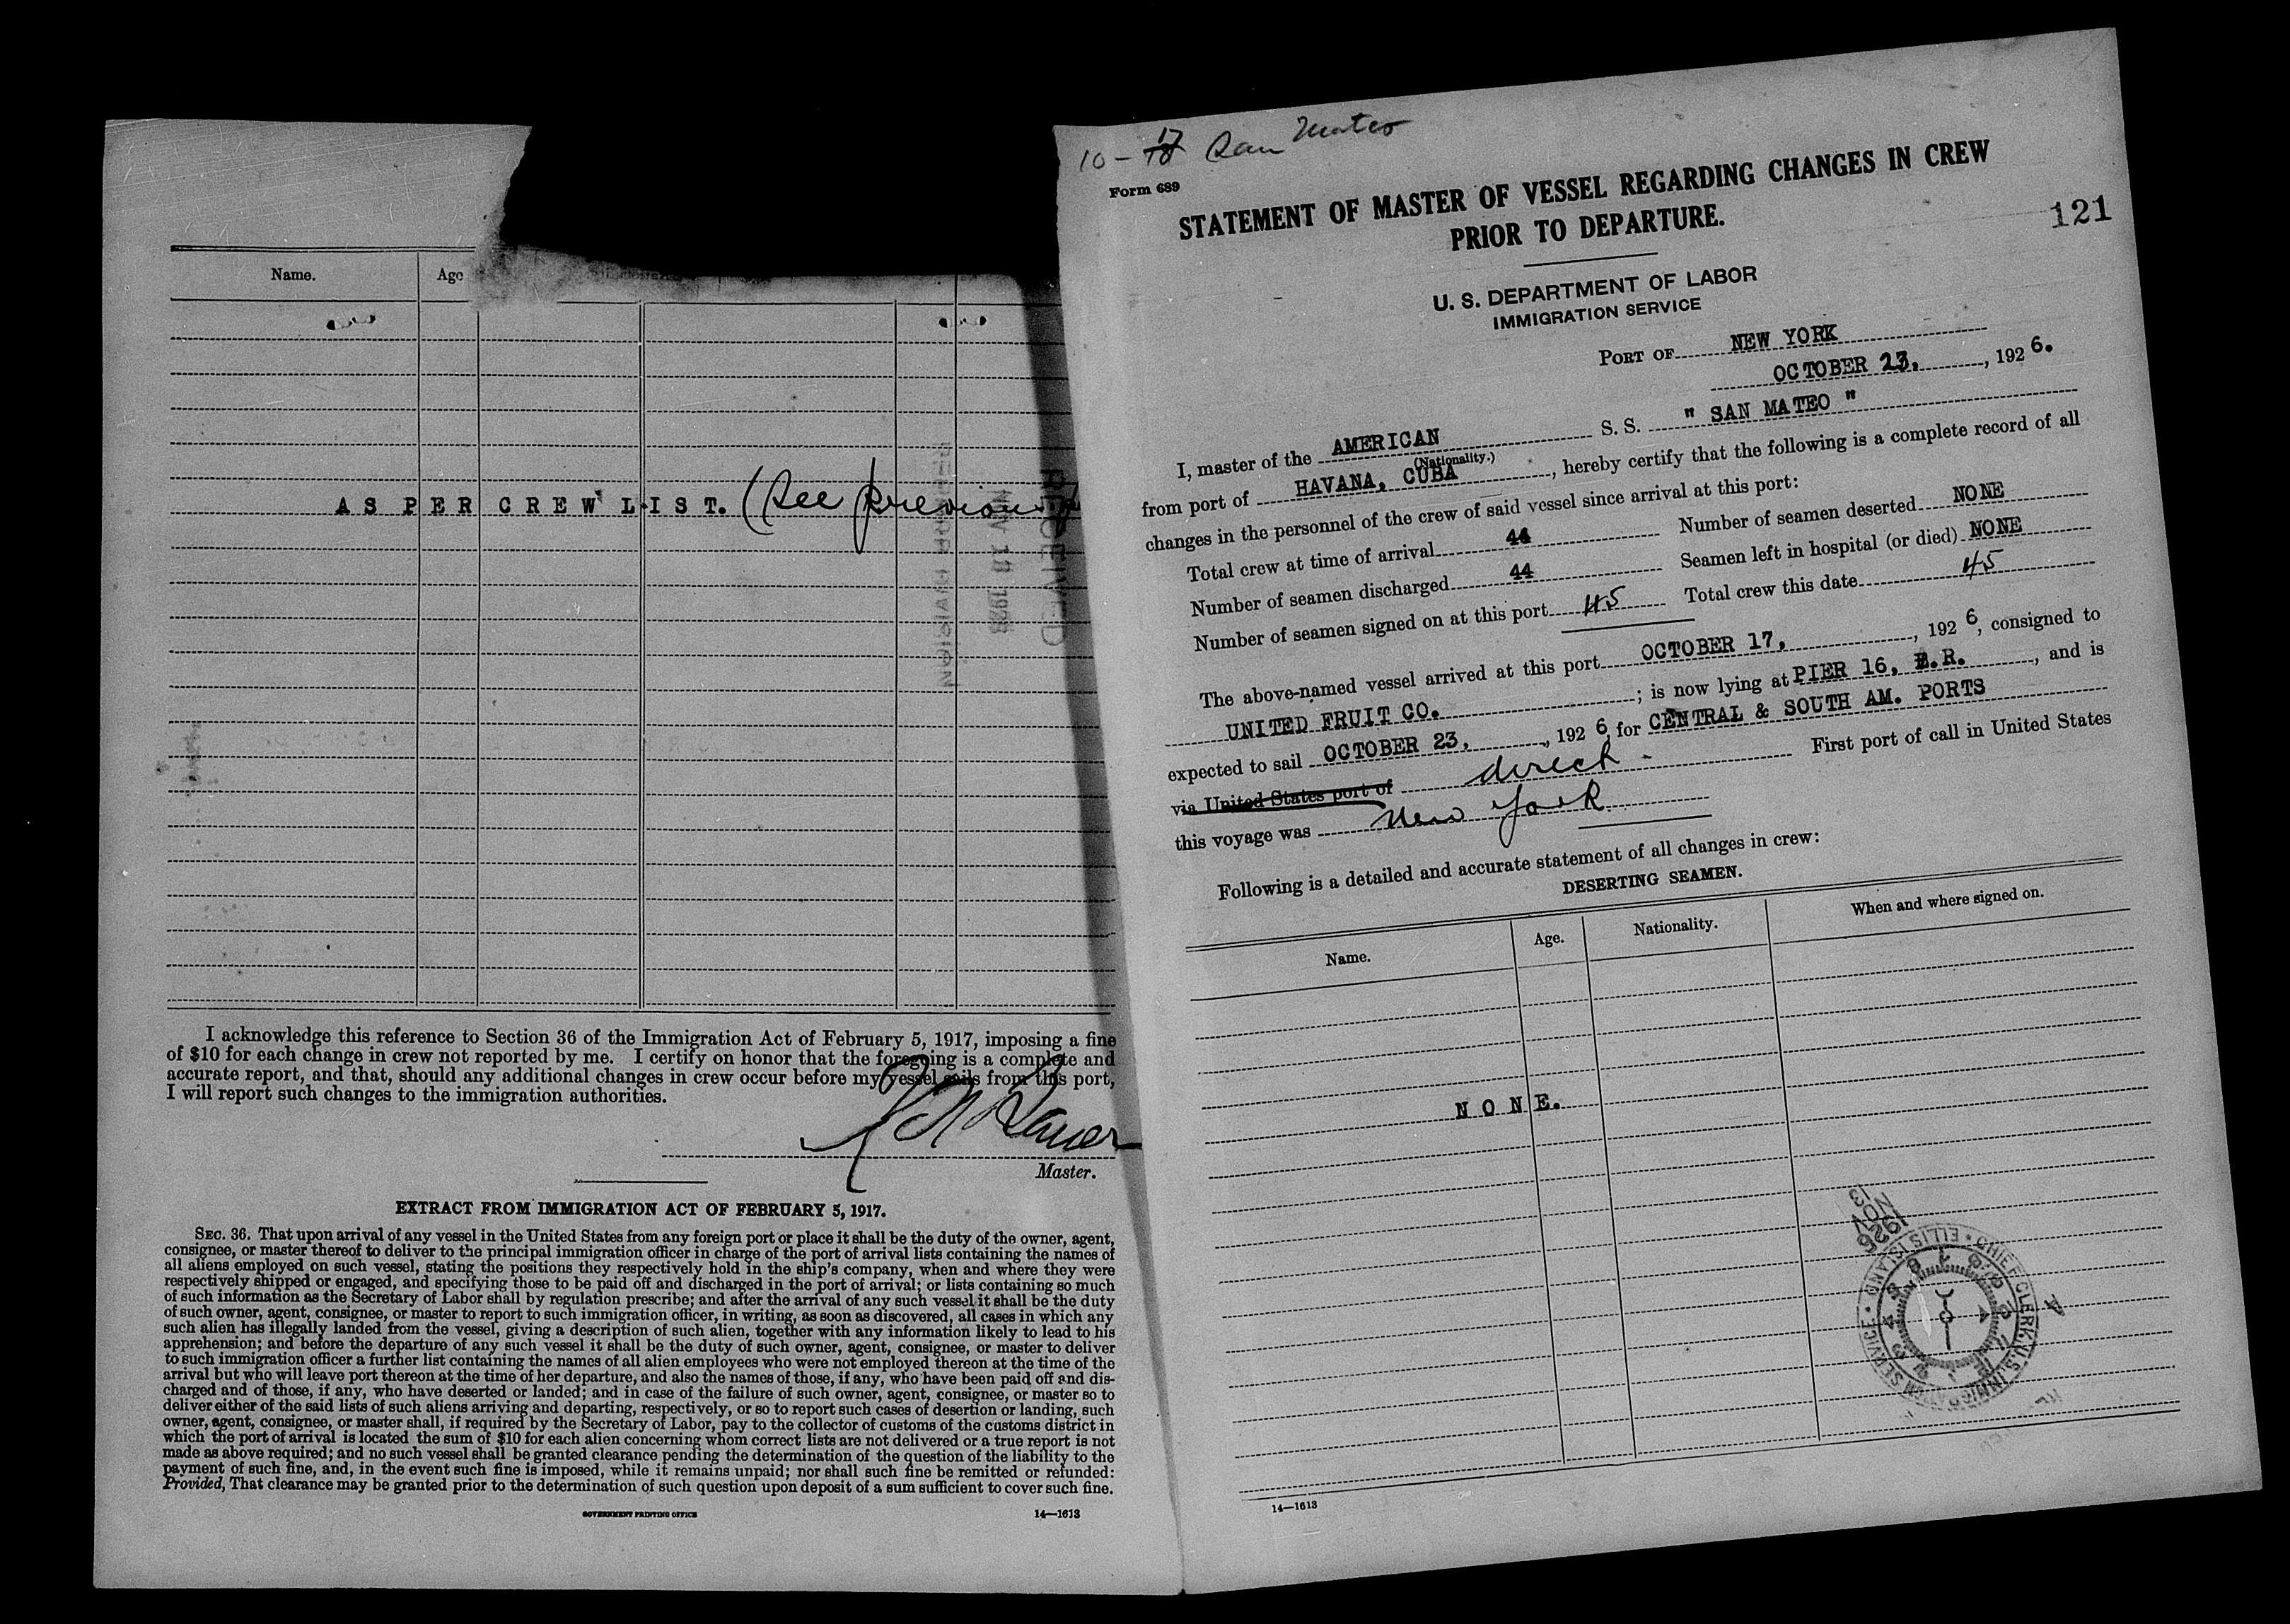 Name.
Age
AS PER CREW LIST. (See previous
RECEIVED
NOV 18 1926
RECORD DIVISION
I acknowledge this reference to Section 36 of the Immigration Act of February 5, 1917, imposing a fine
of $10 for each change in crew not reported by me. I certify on honor that the foregoing is a complete and
accurate report, and that, should any additional changes in crew occur before my vessel sails from this port,
I will report such changes to the immigration authorities.
Master.
EXTRACT FROM IMMIGRATION ACT OF FEBRUARY 5, 1917.
SEC. 36. That upon arrival of any vessel in the United States from any foreign port or place it shall be the duty of the owner, agent,
consignee, or master thereof to deliver to the principal immigration officer in charge of the port of arrival lists containing the names of
all aliens employed on such vessel, stating the positions they respectively hold in the ship's company, when and where they were
respectively shipped or engaged, and specifying those to be paid off and discharged in the port of arrival; or lists containing so much
of such information as the Secretary of Labor shall by regulation prescribe; and after the arrival of any such vessel it shall be the duty
of such owner, agent, consignee, or master to report to such immigration officer, in writing, as soon as discovered, all cases in which any
such alien has illegally landed from the vessel, giving a description of such alien, together with any information likely to lead to his
apprehension; and before the departure of any such vessel it shall be the duty of such owner, agent, consignee, or master to deliver
to such immigration officer a further list containing the names of all alien employees who were not employed thereon at the time of the
arrival but who will leave port thereon at the time of her departure, and also the names of those, if any, who have been paid off and dis-
charged and of those, if any, who have deserted or landed; and in case of the failure of such owner, agent, consignee, or master so to
deliver either of the said lists of such aliens arriving and departing, respectively, or so to report such cases of desertion or landing, such
owner, agent, consignee, or master shall, if required by the Secretary of Labor, pay to the collector of customs of the customs district in
which the port of arrival is located the sum of $10 for each alien concerning whom correct lists are not delivered or a true report is not
made as above required; and no such vessel shall be granted clearance pending the determination of the question of the liability to the
payment of such fine, and, in the event such fine is imposed, while it remains unpaid; nor shall such fine be remitted or refunded:
Provided, That clearance may be granted prior to the determination of such question upon deposit of a sum sufficient to cover such fine.
GOVERNMENT PRINTING OFFICE
14—1613
10 - 17 San Mateo
Form 689
STATEMENT OF MASTER OF VESSEL REGARDING CHANGES IN CREW
PRIOR TO DEPARTURE.
121
U. S. DEPARTMENT OF LABOR
IMMIGRATION SERVICE
PORT OF NEW YORK
OCTOBER 23, , 1926.
I, master of the AMERICAN S. S. " SAN MATEO "
(Nationality.)
from port of HAVANA, CUBA , hereby certify that the following is a complete record of all
changes in the personnel of the crew of said vessel since arrival at this port:
Total crew at time of arrival 44 Number of seamen deserted NONE
Number of seamen discharged 44 Seamen left in hospital (or died) NONE
Number of seamen signed on at this port 45 Total crew this date 45
The above-named vessel arrived at this port OCTOBER 17, , 1926, consigned to
UNITED FRUIT CO. ; is now lying at PIER 16, E.R. , and is
expected to sail OCTOBER 23, , 1926, for CENTRAL & SOUTH AM. PORTS
via United States port of direct - First port of call in United States
this voyage was New York
Following is a detailed and accurate statement of all changes in crew:
DESERTING SEAMEN.
Name.
Age.
Nationality.
When and where signed on.
NONE.
1926 NOV 13
CHIEF CLERK U.S. IMMIGRATION SERVICE • ELLIS ISLAND •
14—1613